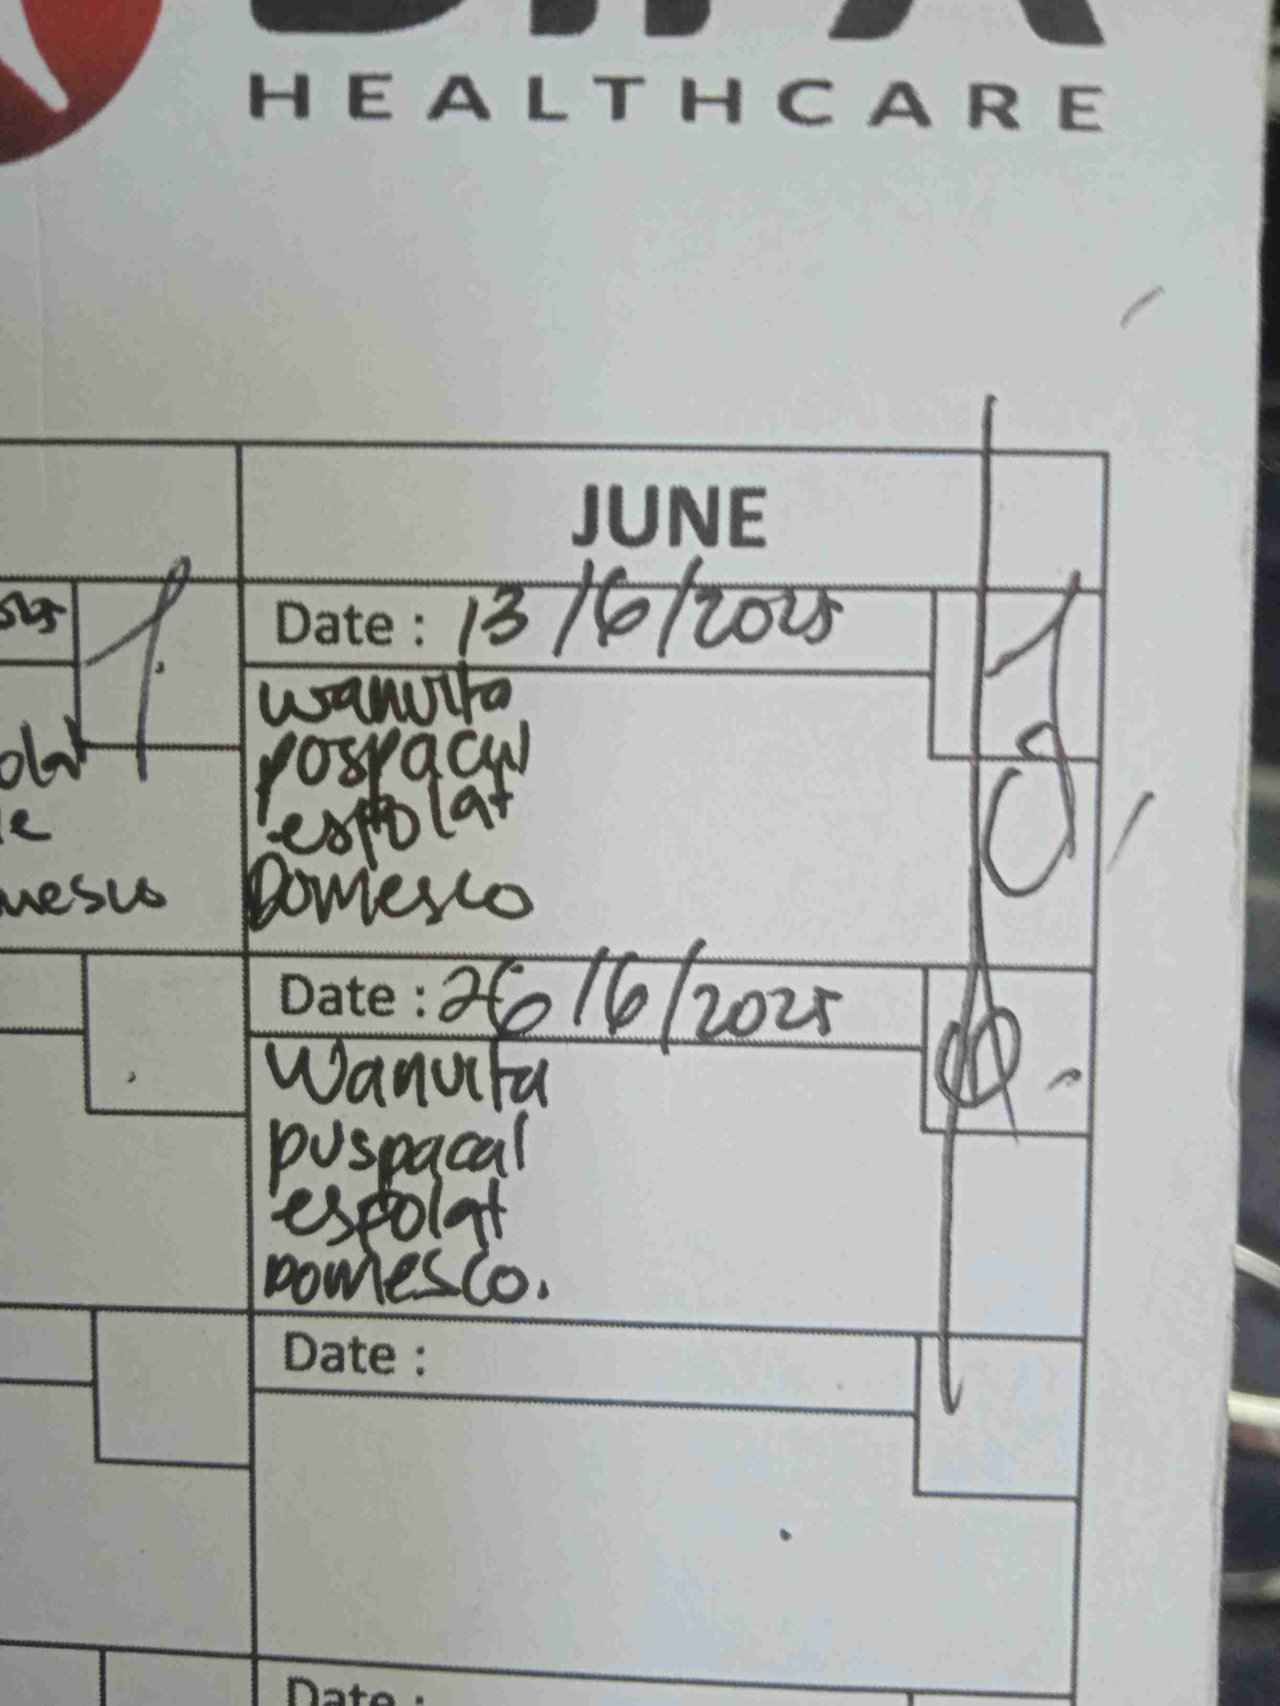 HEALTHCARE
JUNE
Date : 13/6/2025
wanvita
pospacul
espolat
Domesco
Date : 26/6/2025
Wanvita
puspacal
espolat
Domesco.
Date :
Date :